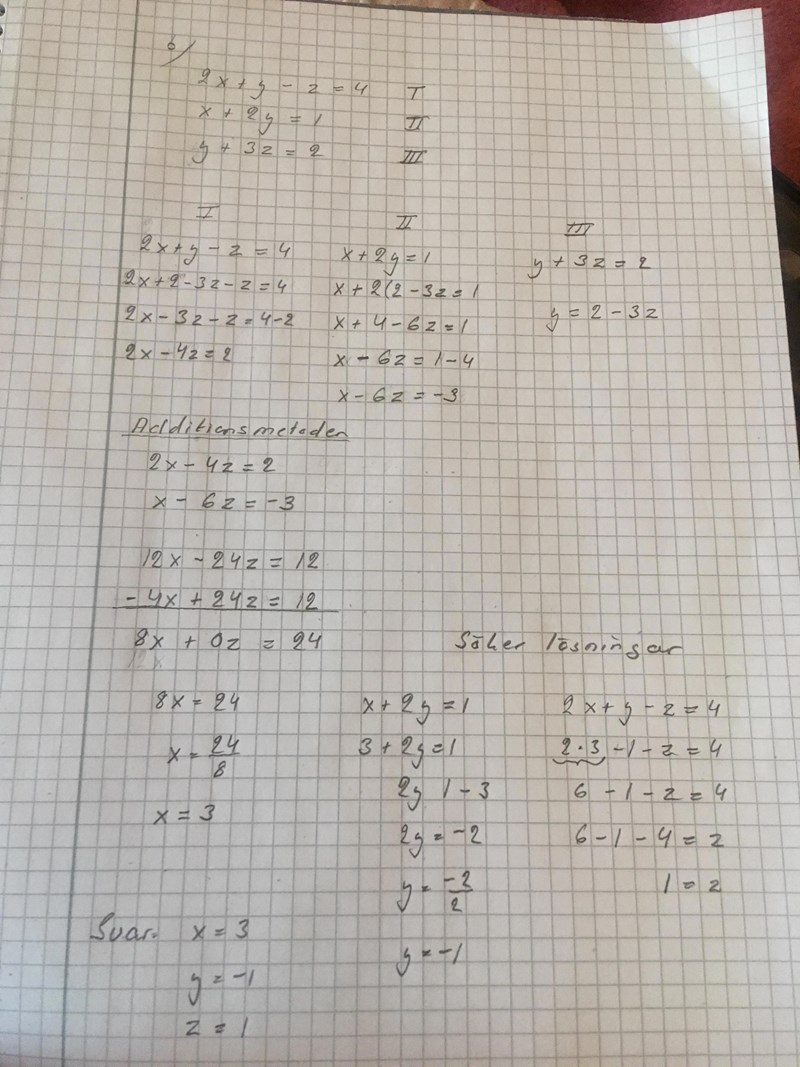 b)
2x + y - z = 4 I
x + 2y = 1 II
y + 3z = 2 III
I
2x + y - z = 4
2x + 2 - 3z - z = 4
2x - 3z - z = 4 - 2
2x - 4z = 2
II
x + 2y = 1
x + 2(2 - 3z = 1
x + 4 - 6z = 1
x - 6z = 1 - 4
x - 6z = -3
III
y + 3z = 2
y = 2 - 3z
Additionsmetoden
2x - 4z = 2
x - 6z = -3
12x - 24z = 12
-4x + 24z = 12
8x + 0z = 24
8x = 24
x = 24/8
x = 3
Söker lösningar
x + 2y = 1
3 + 2y = 1
2y 1 - 3
2y = -2
y = -2/2
y = -1
2x + y - z = 4
2·3 - 1 - z = 4
6 - 1 - z = 4
6 - 1 - 4 = z
1 = z
Svar. x = 3
y = -1
z = 1